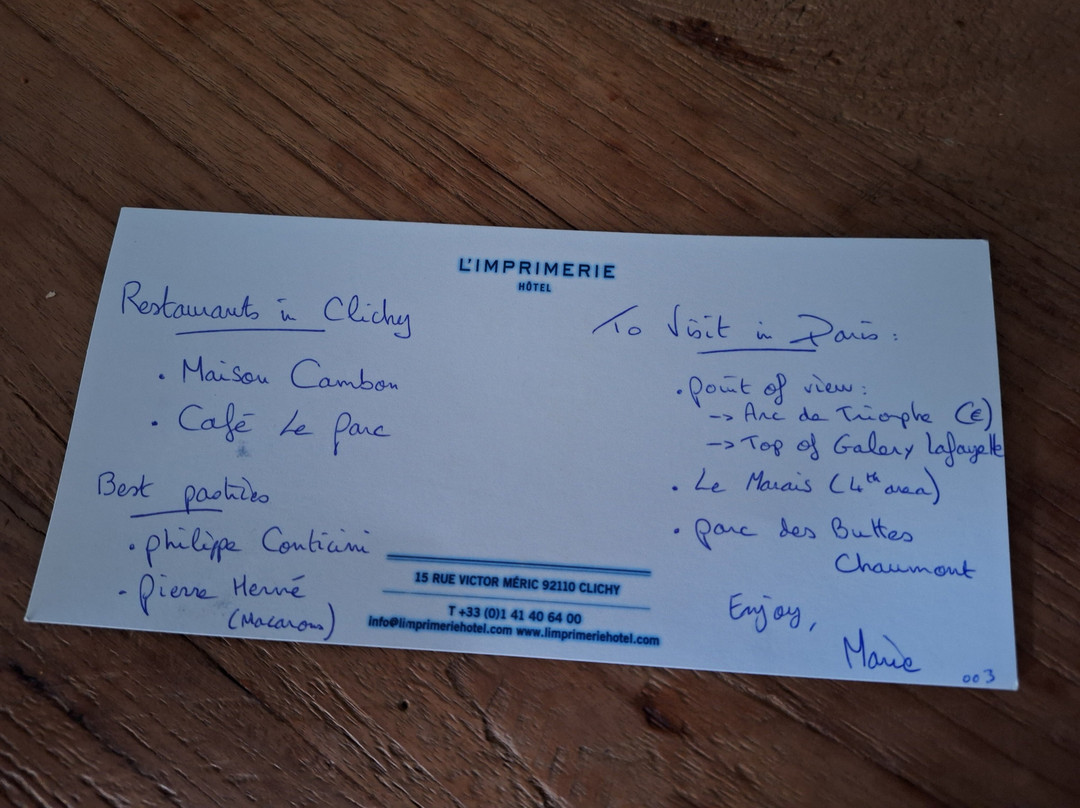 L'IMPRIMERIE
HÔTEL
Restaurants in Clichy
• Maison Cambon
• Café Le Parc
Best pastries
• philippe Conticini
• Pierre Hervé
(Macarons)
To Visit in Paris:
• point of view:
-> Arc de Triomphe (€)
-> Top of Galery Lafayette
• Le Marais (4th area)
• parc des Buttes
Chaumont
Enjoy,
Marie
003
15 RUE VICTOR MÉRIC 92110 CLICHY
T +33 (0)1 41 40 64 00
info@limprimeriehotel.com www.limprimeriehotel.com